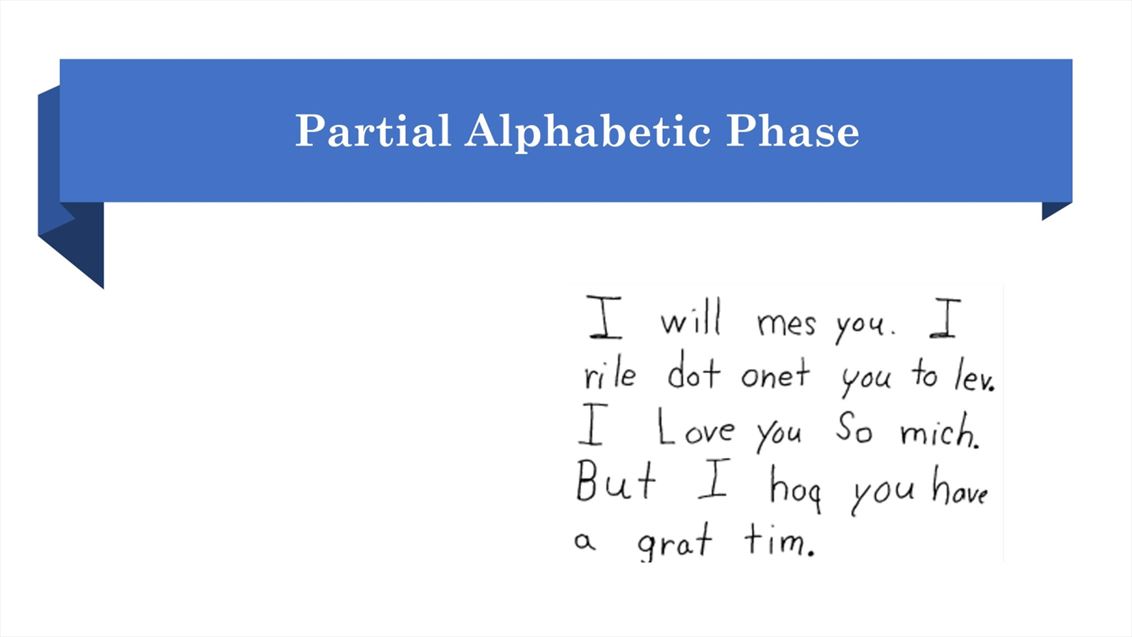 Partial Alphabetic Phase
I will mes you. I
rile dot onet you to lev.
I Love you So mich.
But I hoq you have
a grat tim.